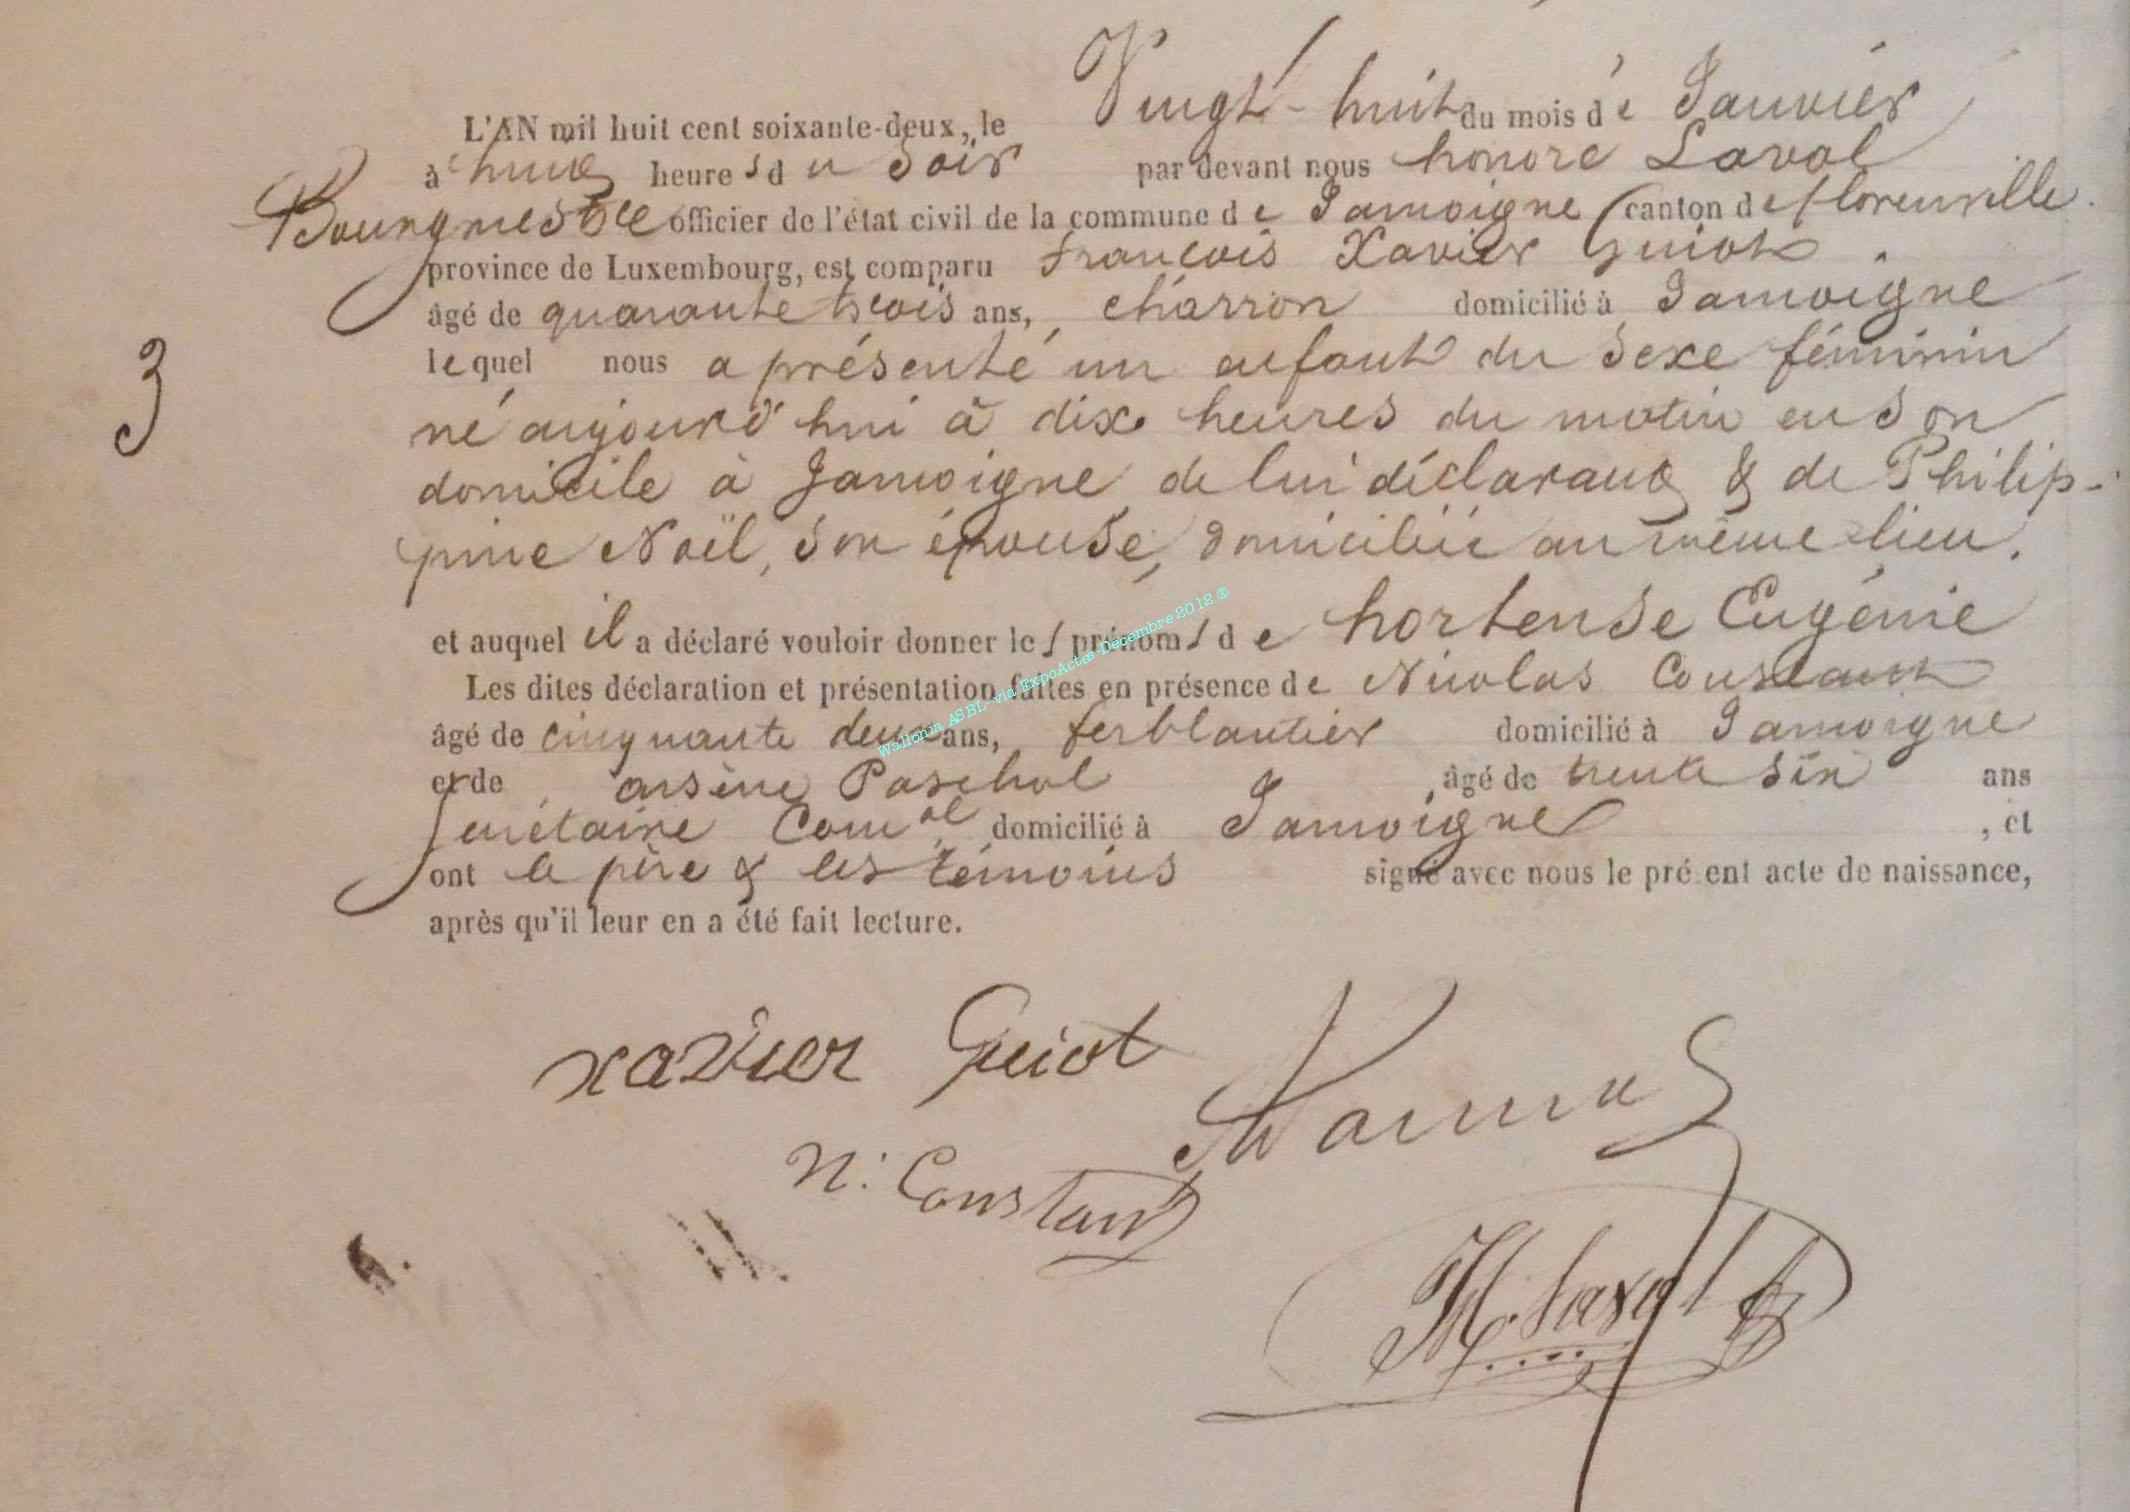 L'AN mil huit cent soixante-deux, le Vingt-huit du mois de Janvier
à huit heures du Soir par devant nous honoré Laval
Bourgmestre officier de l'état civil de la commune de Jamoigne canton de florenville
province de Luxembourg, est comparu françois Xavier Guiot
âgé de quarante trois ans, charron domicilié à Jamoigne
lequel nous a présenté un enfant du Sexe féminin
né aujourd'hui à dix heures du matin en son
domicile à Jamoigne de lui déclarant & de Philip-
pine Noël, son épouse, domiciliée au même lieu.
et auquel il a déclaré vouloir donner les prénoms de hortense Eugénie
Les dites déclaration et présentation faites en présence de Nicolas Constant
âgé de cinquante deux ans, ferblantier domicilié à Jamoigne
et de arsène Paschal âgé de trente six ans
Secrétaire Com.al domicilié à Jamoigne, et
ont le père & les témoins signé avec nous le présent acte de naissance,
après qu'il leur en a été fait lecture.
3
Wallonia ASBL - via ExpoActes - Décembre 2018 ®
xavier Guiot
N: Constant
H. Laval